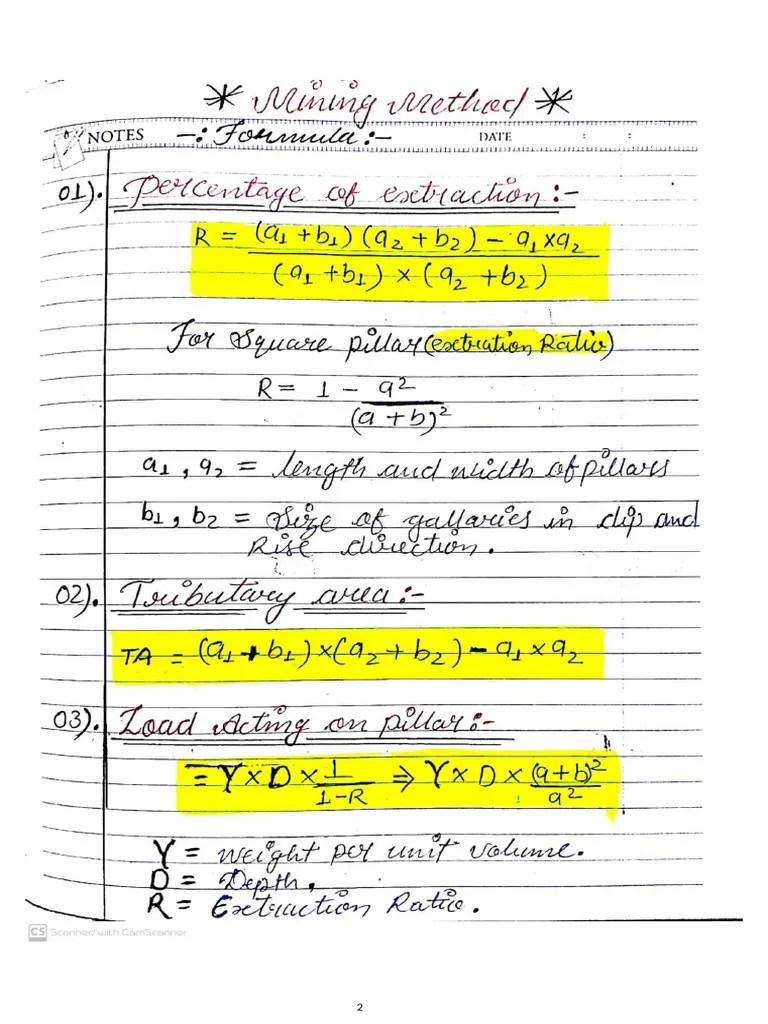 * Mining Method *
NOTES -: Formula :- DATE : :
01). Percentage of exetraction :-
R = (a1 + b1) (a2 + b2) - a1 x a2
(a1 + b1) x (a2 + b2)
For Square pillar (exetration Ratio)
R = 1 - a2
(a + b)2
a1 , a2 = length and width of pillars
b1 , b2 = Size of gallaries in dip and
Rise direction .
02). Tributary area :-
TA = (a1 + b1) x (a2 + b2) - a1 x a2
03). Load Acting on pillar :-
= γ x D x 1 ⇒ γ x D x (a + b)2
1-R a2
γ = weight per unit volume .
D = Depth ,
R = Extraction Ratio .
CS Scanned with CamScanner
2